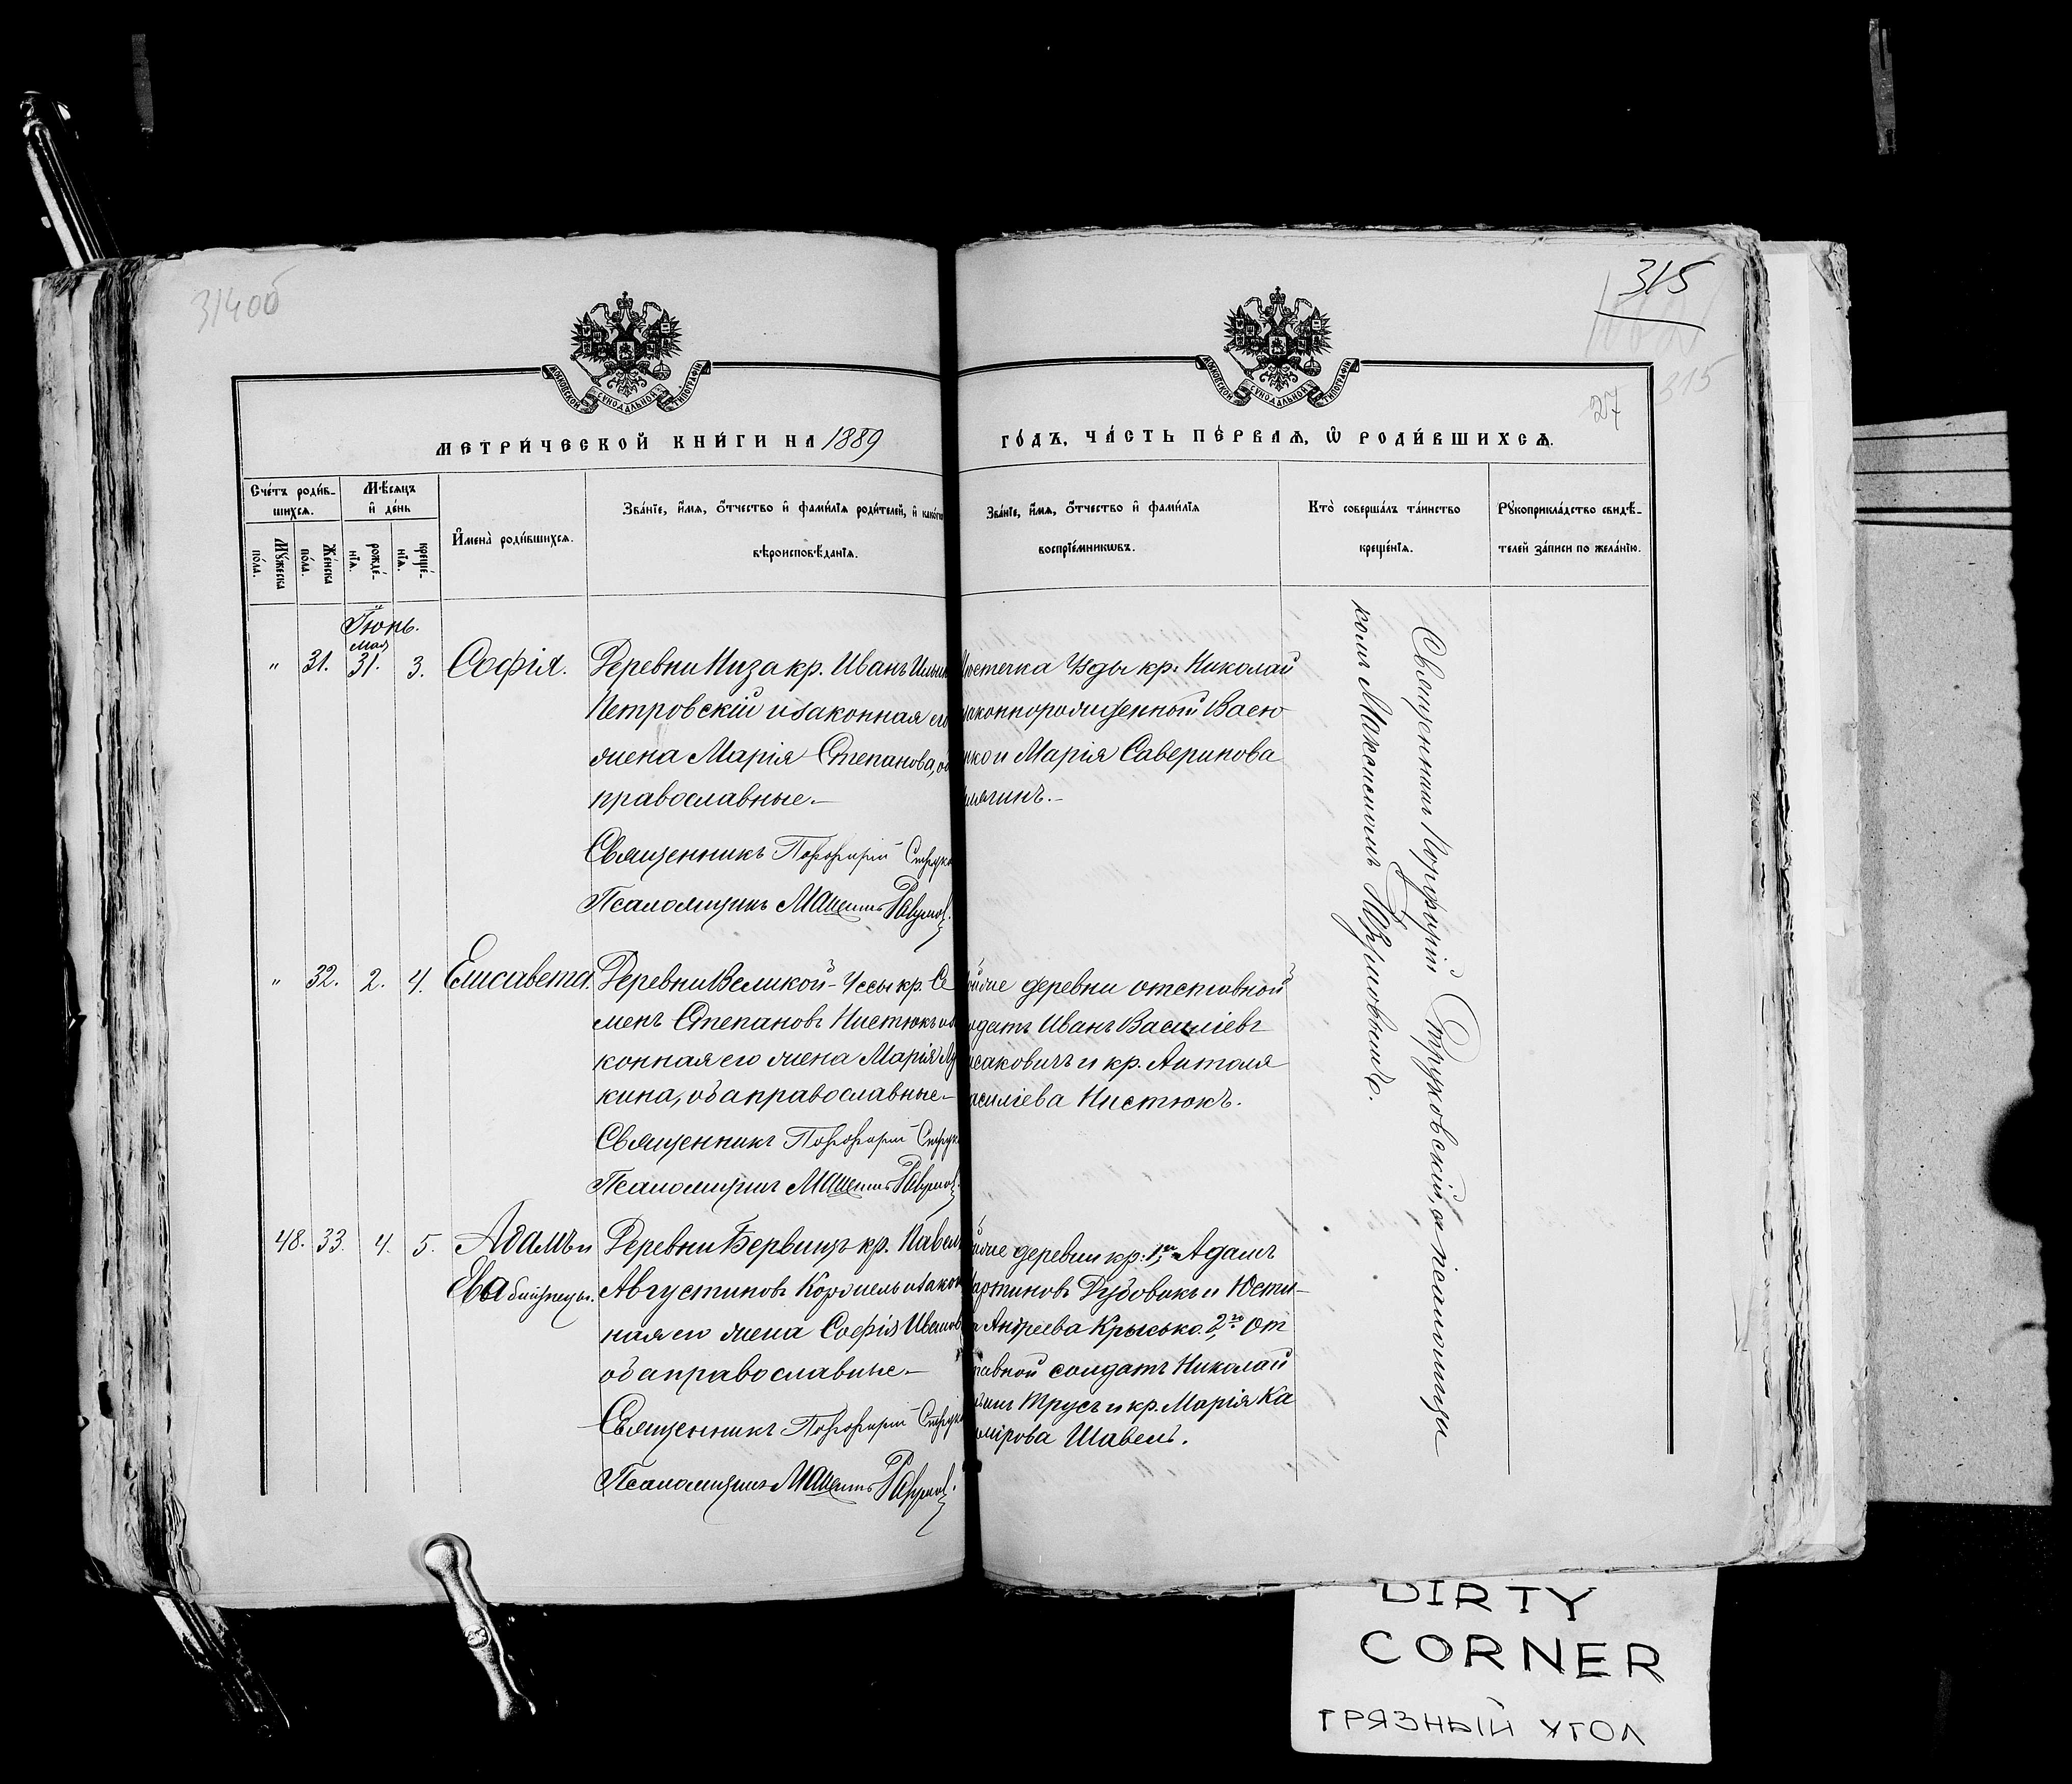 314об
МОСКОВСКОЙ СУНОДАЛЬНОЙ ТИПОГРАФІИ
МЕТРИ́ЧЕСКОЙ КНИ́ГИ НА 1889
Сче́тъ роди́в-
шихсѧ.
Мѣ́сѧцъ
и҆ де́нь
Мꙋ́жеска
по́ла.
Же́нска
по́ла.
рожде́-
нїѧ.
креще́-
нїѧ.
И҆мена̀ роди́вшихсѧ.
Зва́нїе, и҆́мѧ, ѻ҆́тчество и҆ фами́лїѧ роди́телей, и҆ како́гѡ
вѣроисповѣ́данїѧ.
Іюнь.
мая
" 31. 31. 3. Софія.
Деревни Низа кр. Иванъ
Петровскій и законная его
жена Марія Степанова, об
православные.-
Священникъ Порфирій
Псаломщикъ
" 32. 2. 4. Елисавета.
Деревни Великой-Уссы кр. Се
менъ Степановъ Нистюкъ и за
конная его жена Марія Лу
кина, оба православные-
Священникъ Порфирій
Псаломщикъ
48. 33. 4. 5. Адамъ и
Ева близнецы.
Деревни кр. Павелъ
Августиновъ и закон
ная его жена Софія
оба православные-
Священникъ Порфирій
Псаломщикъ
315
315
27
МОСКОВСКОЙ СУНОДАЛЬНОЙ ТИПОГРАФІИ
ГО́ДЪ, ЧА́СТЬ ПЕ́РВАѦ, Ѡ҆ РОДИ́ВШИХСѦ.
Зва́нїе, и҆́мѧ, ѻ҆́тчество и҆ фами́лїѧ
воспрїе́мникѡвъ.
Кто̀ соверша́лъ та́инство
креще́нїѧ.
Рꙋкоприкла́дство свидѣ́-
телей за́писи по жела́нїю.
Местечка Узды кр. Николай
законнорожденный Васю
ко и Марія Саверинова
деревни отставной
лдатъ Иванъ Василіевъ
саковичъ и кр. Антоля
асиліева Нистюкъ.
деревни кр: 1го Адамъ
артиновъ Дубовикъ и Юсти-
а Андреева Крысько. 2го От
тавной солдатъ Николай
Трусъ и кр. Марія Ка
мірова Шавель.
Священникъ Порфирій Струковскій, съ псаломщи
комъ Максимомъ
DIRTY
CORNER
ГРЯЗНЫЙ УГОЛ